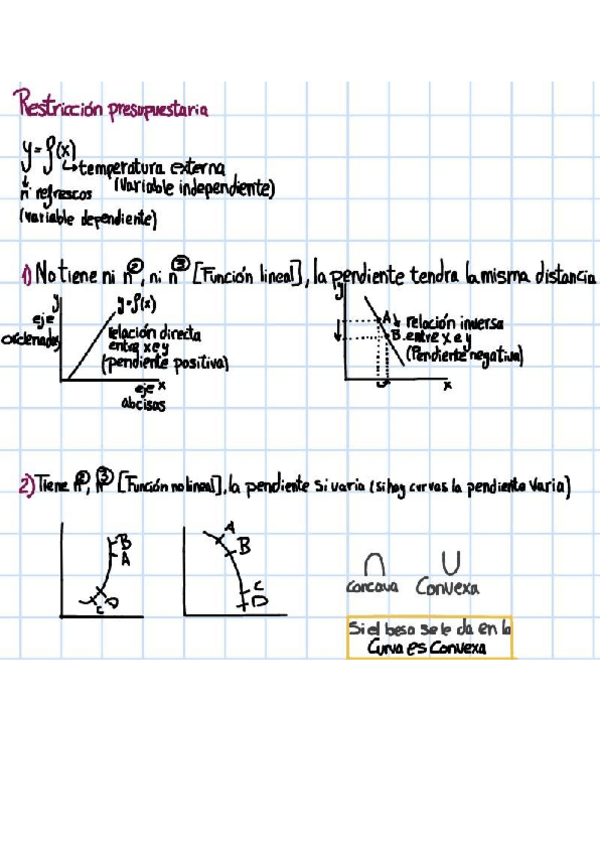 Restricción presupuestaria
y=f(x)
↳temperatura externa
(Variable independiente)
n° refrescos
(variable dependiente)
1) No tiene ni n², ni n³ [Función lineal], la pendiente tendra la misma distancia
y
eje
ordenadas
y=f(x)
relación directa
entre x e y
(pendiente positiva)
eje x
abcisas
y
A
relación inversa
B. entre x e y
(Pendiente negativa)
x
2) Tiene n², n³ [Función no lineal], la pendiente si varia (si hay curvas la pendiente varia)
B
A
C D
A
B
C
D
∩ U
Concava Convexa
Si el beso se le da en la
Curva es Convexa